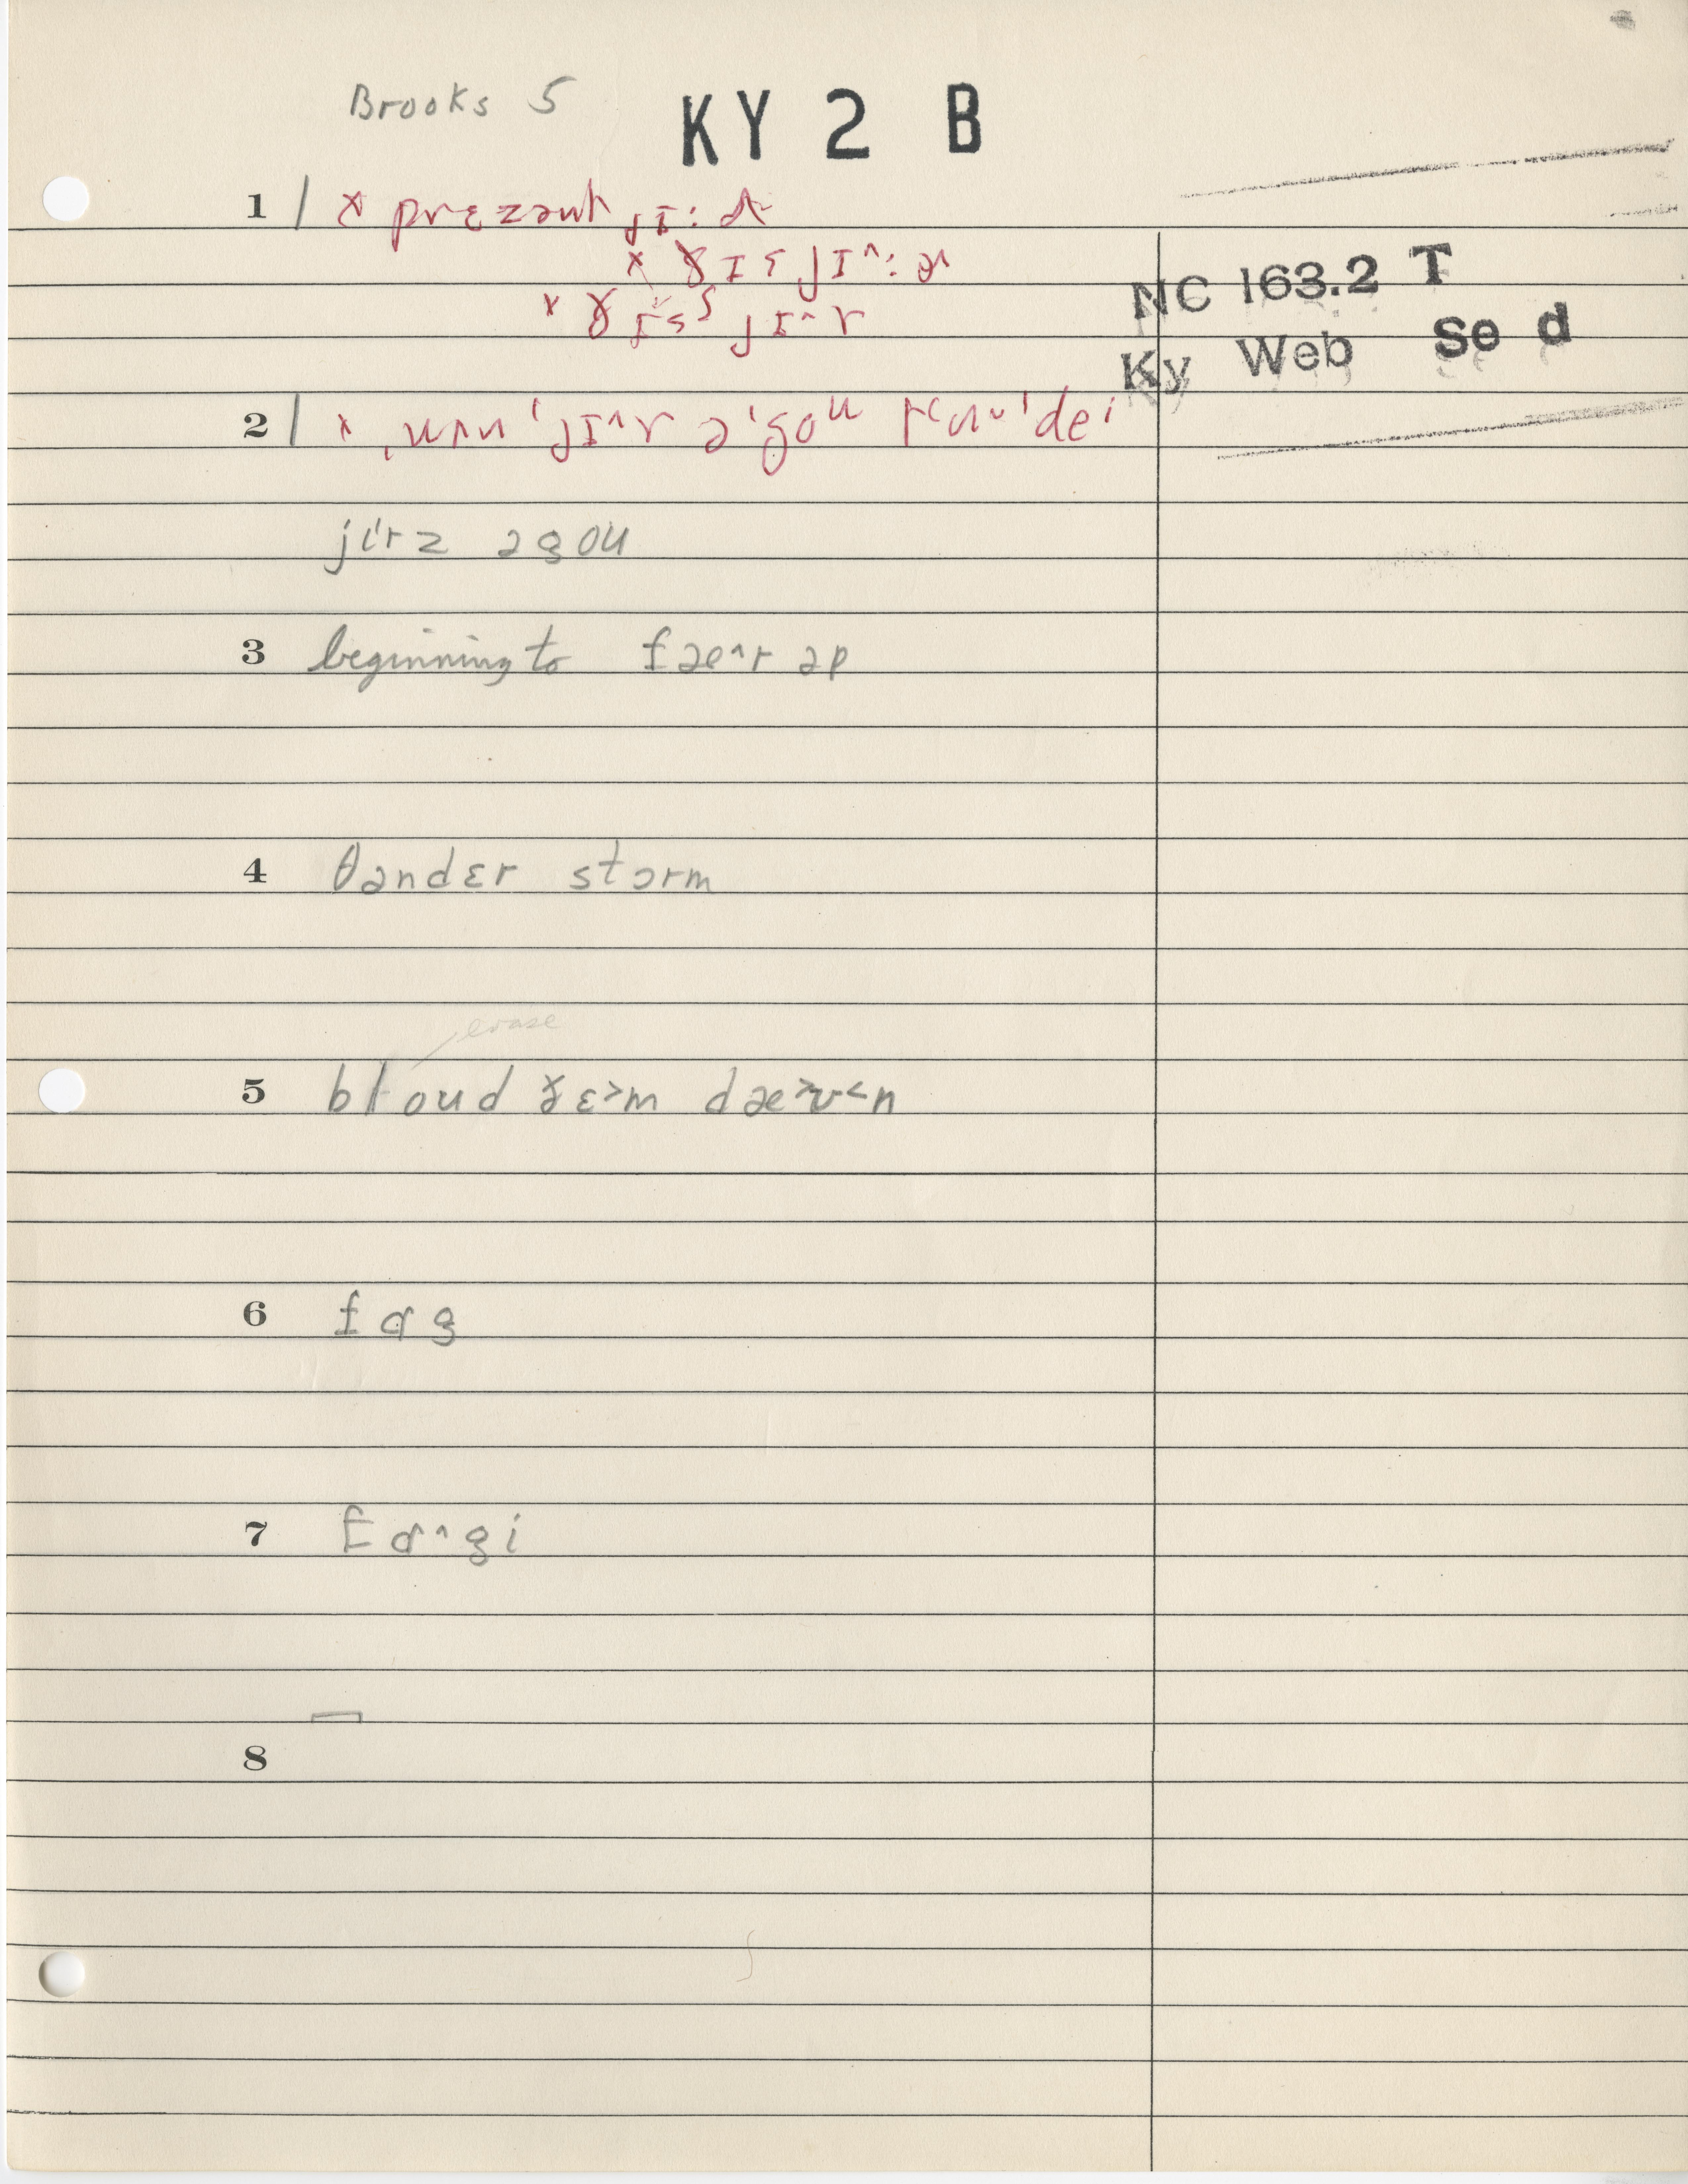 Brooks 5 KY 2 B
1 x prɛzənt jɪ:ɚ
x ɣɪs jɪ^:ɚ
NC 163.2 T
x ɣɪsʃ jɪ^r
Ky Web Se d
2 x ˌwʌn ˈjɪ^r əˈgoʊ
jirz əgou
3 beginning to fæ^r əp
4 θəndɛr stɔrm
erase
5 bloud ɣɛ>m dæ>ʊ<n
6 fɑg
7 fɑ^gi
8